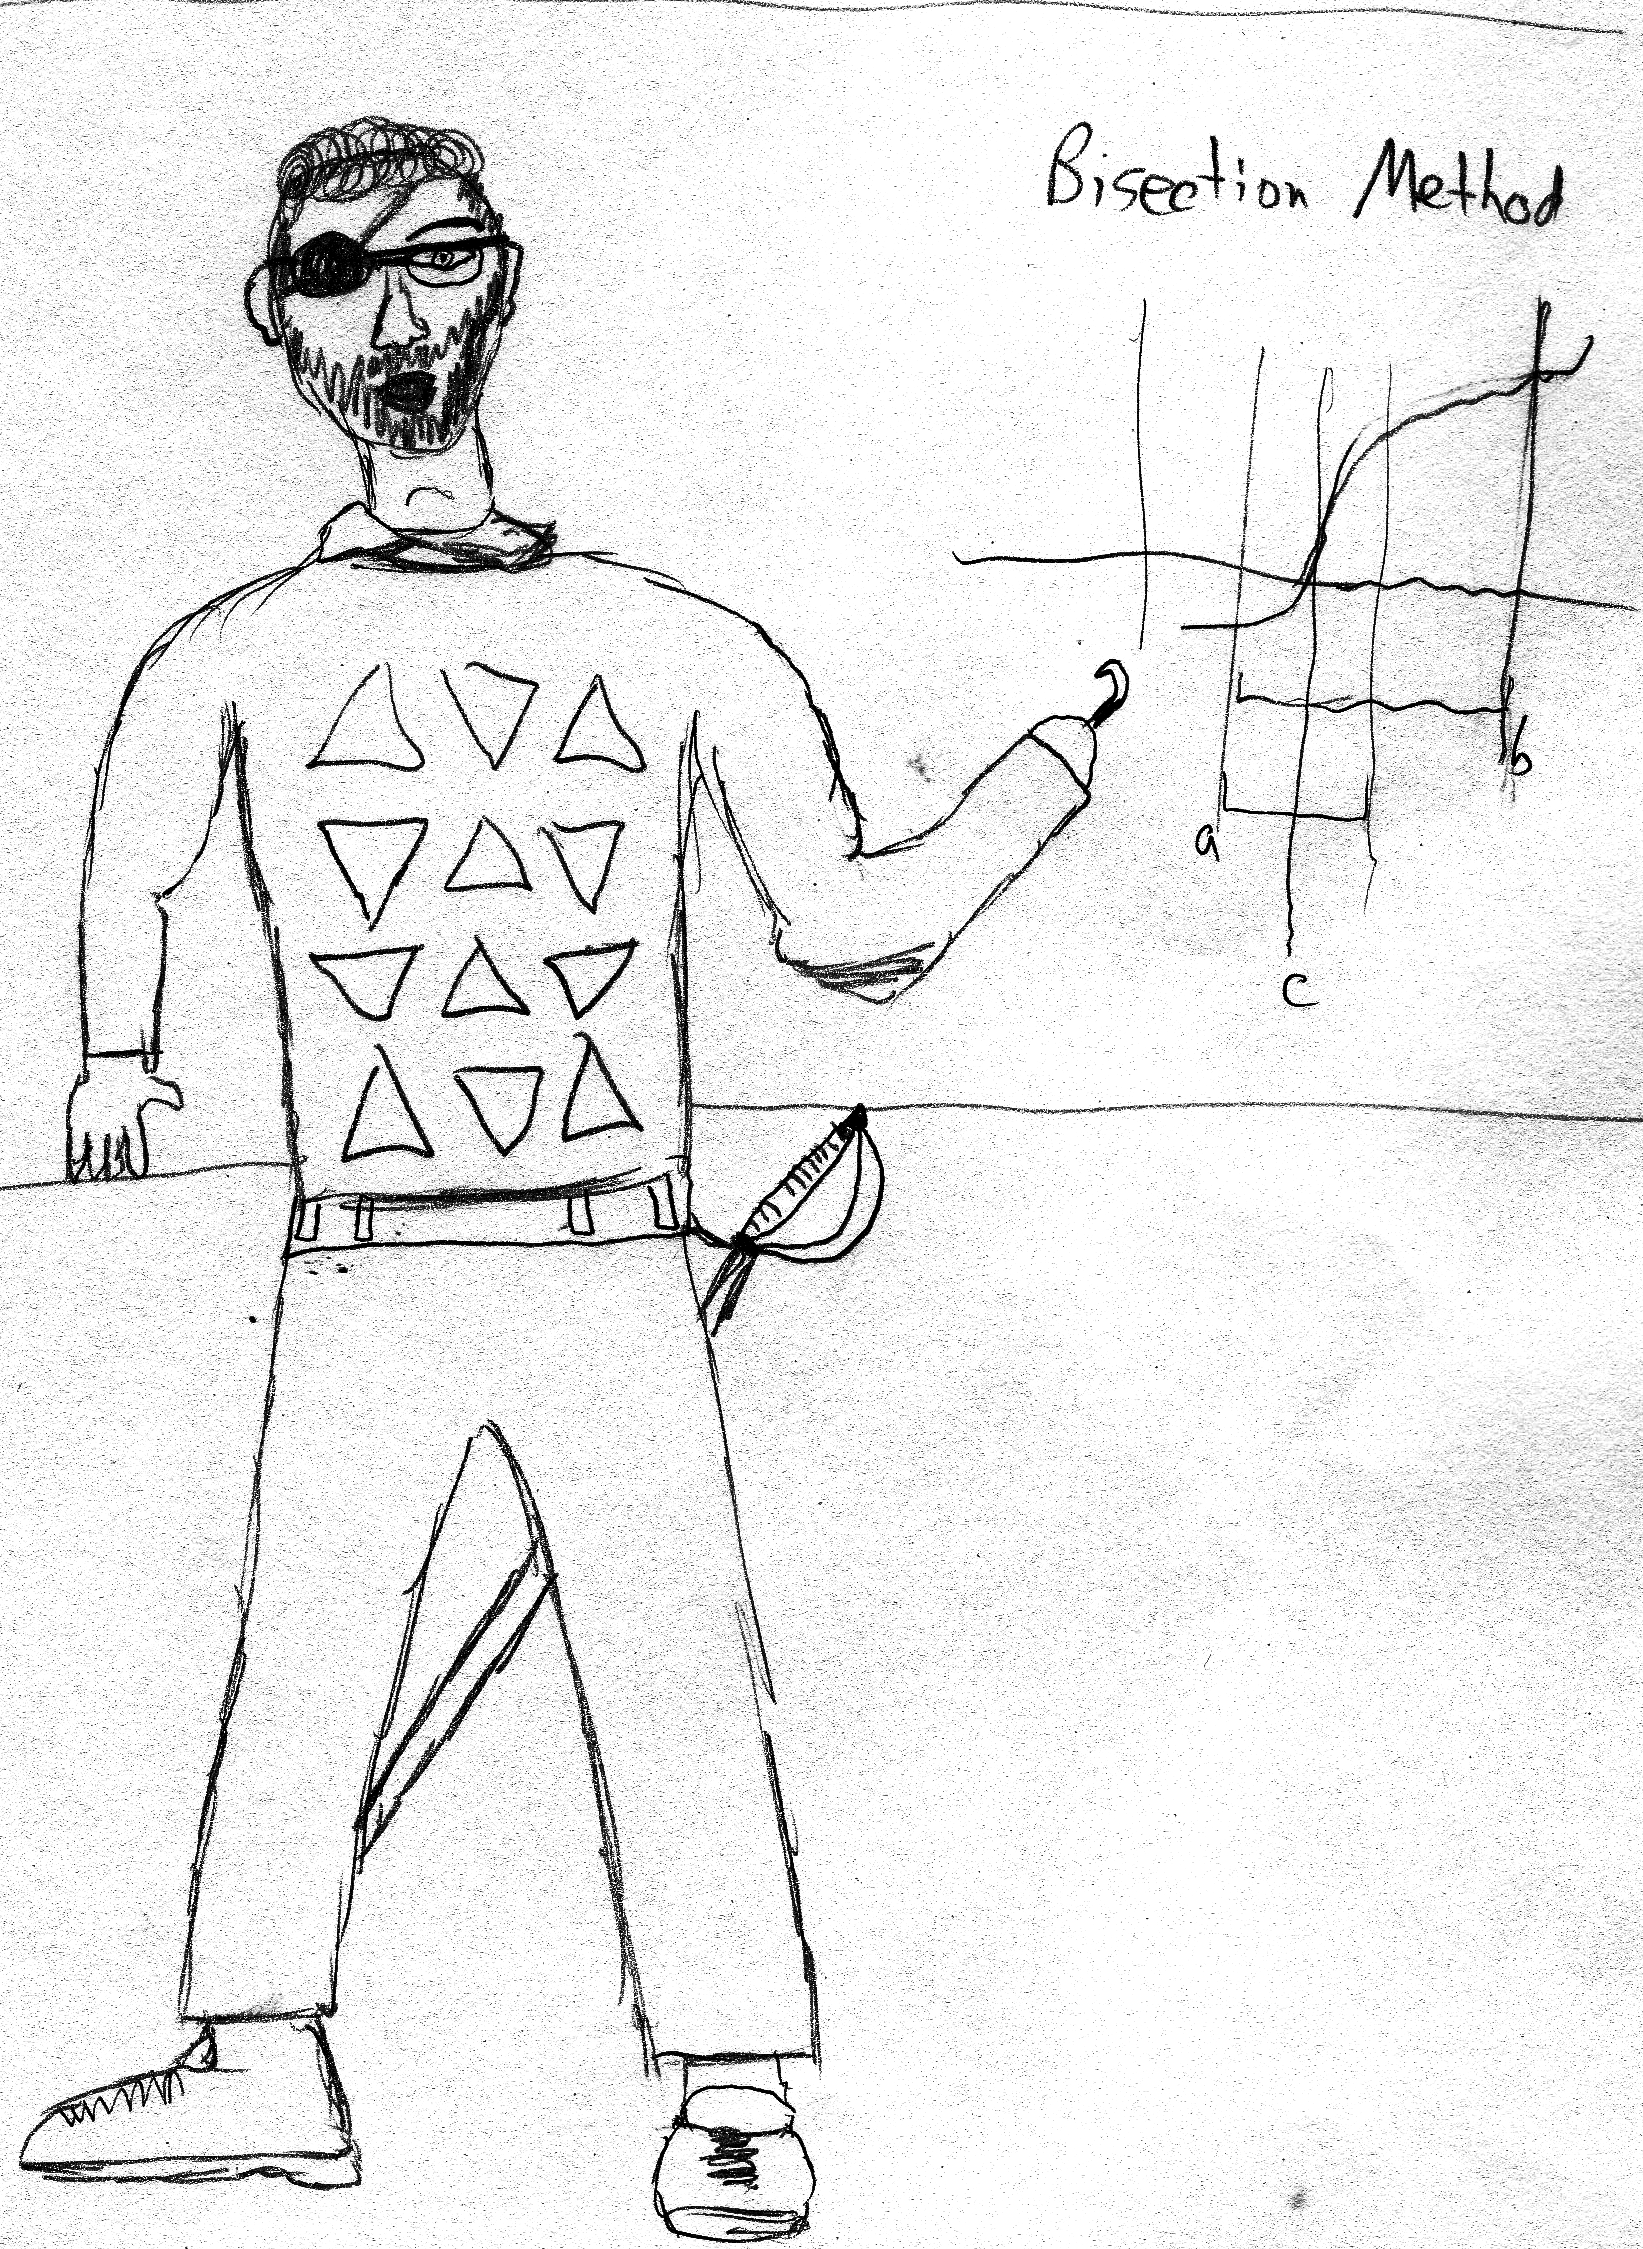 Bisection Method
b
a
c